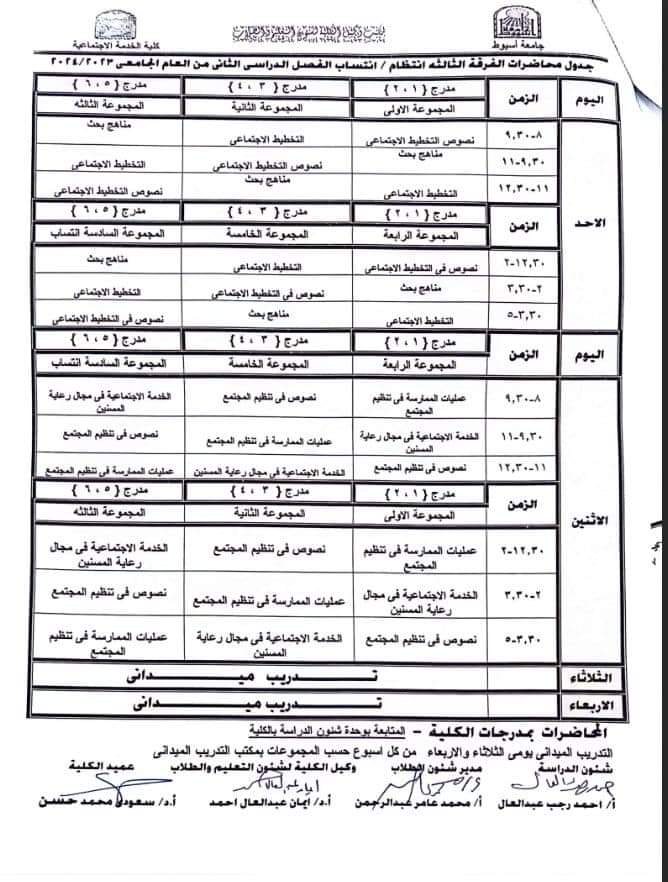 جامعة أسيوط
كلية الخدمة الاجتماعية
جدول محاضرات الفرقة الثالثه انتظام / انتساب الفصل الدراسى الثانى من العام الجامعى ٢٠٢٤/٢٠٢٣
اليوم الزمن مدرج { ٢،١ } مدرج { ٤،٣ } مدرج { ٦،٥ }
المجموعة الاولى المجموعة الثانية المجموعة الثالثه
الاحد
٩,٣٠-٨ نصوص التخطيط الاجتماعى التخطيط الاجتماعى مناهج بحث
١١-٩,٣٠ مناهج بحث نصوص التخطيط الاجتماعى التخطيط الاجتماعى
١٢,٣٠-١١ التخطيط الاجتماعى مناهج بحث نصوص التخطيط الاجتماعى
الزمن مدرج { ٢،١ } مدرج { ٤،٣ } مدرج { ٦،٥ }
المجموعة الرابعة المجموعة الخامسة المجموعة السادسة انتساب
٢-١٢,٣٠ نصوص فى التخطيط الاجتماعى التخطيط الاجتماعى مناهج بحث
٣,٣٠-٢ مناهج بحث نصوص فى التخطيط الاجتماعى التخطيط الاجتماعى
٥-٣,٣٠ التخطيط الاجتماعى مناهج بحث نصوص فى التخطيط الاجتماعى
اليوم الزمن مدرج { ٢،١ } مدرج { ٤،٣ } مدرج { ٦،٥ }
المجموعة الرابعة المجموعة الخامسة المجموعة السادسة انتساب
الاثنين
٩,٣٠-٨ عمليات الممارسة فى تنظيم المجتمع نصوص فى تنظيم المجتمع الخدمة الاجتماعية فى مجال رعاية المسنين
١١-٩,٣٠ الخدمة الاجتماعية فى مجال رعاية المسنين عمليات الممارسة فى تنظيم المجتمع نصوص فى تنظيم المجتمع
١٢,٣٠-١١ نصوص فى تنظيم المجتمع الخدمة الاجتماعية فى مجال رعاية المسنين عمليات الممارسة فى تنظيم المجتمع
الزمن مدرج { ٢،١ } مدرج { ٤،٣ } مدرج { ٦،٥ }
المجموعة الاولى المجموعة الثانية المجموعة الثالثه
٢-١٢,٣٠ عمليات الممارسة فى تنظيم المجتمع نصوص فى تنظيم المجتمع الخدمة الاجتماعية فى مجال رعاية المسنين
٣,٣٠-٢ الخدمة الاجتماعية فى مجال رعاية المسنين عمليات الممارسة فى تنظيم المجتمع نصوص فى تنظيم المجتمع
٥-٣,٣٠ نصوص فى تنظيم المجتمع الخدمة الاجتماعية فى مجال رعاية المسنين عمليات الممارسة فى تنظيم المجتمع
الثلاثاء تــدريب ميــدانى
الاربعاء تــدريب ميــدانى
المحاضرات بمدرجات الكلية – المتابعة بوحدة شئون الدراسة بالكلية
التدريب الميدانى يومى الثلاثاء والاربعاء من كل اسبوع حسب المجموعات بمكتب التدريب الميدانى
شئون الدراسة مدير شئون الطلاب وكيل الكلية لشئون التعليم والطلاب عميد الكلية
أ/ احمد رجب عبدالعال أ/ محمد عامر عبدالرحمن أ.د/ ايمان عبدالعال احمد أ.د/ سعودى محمد حسن